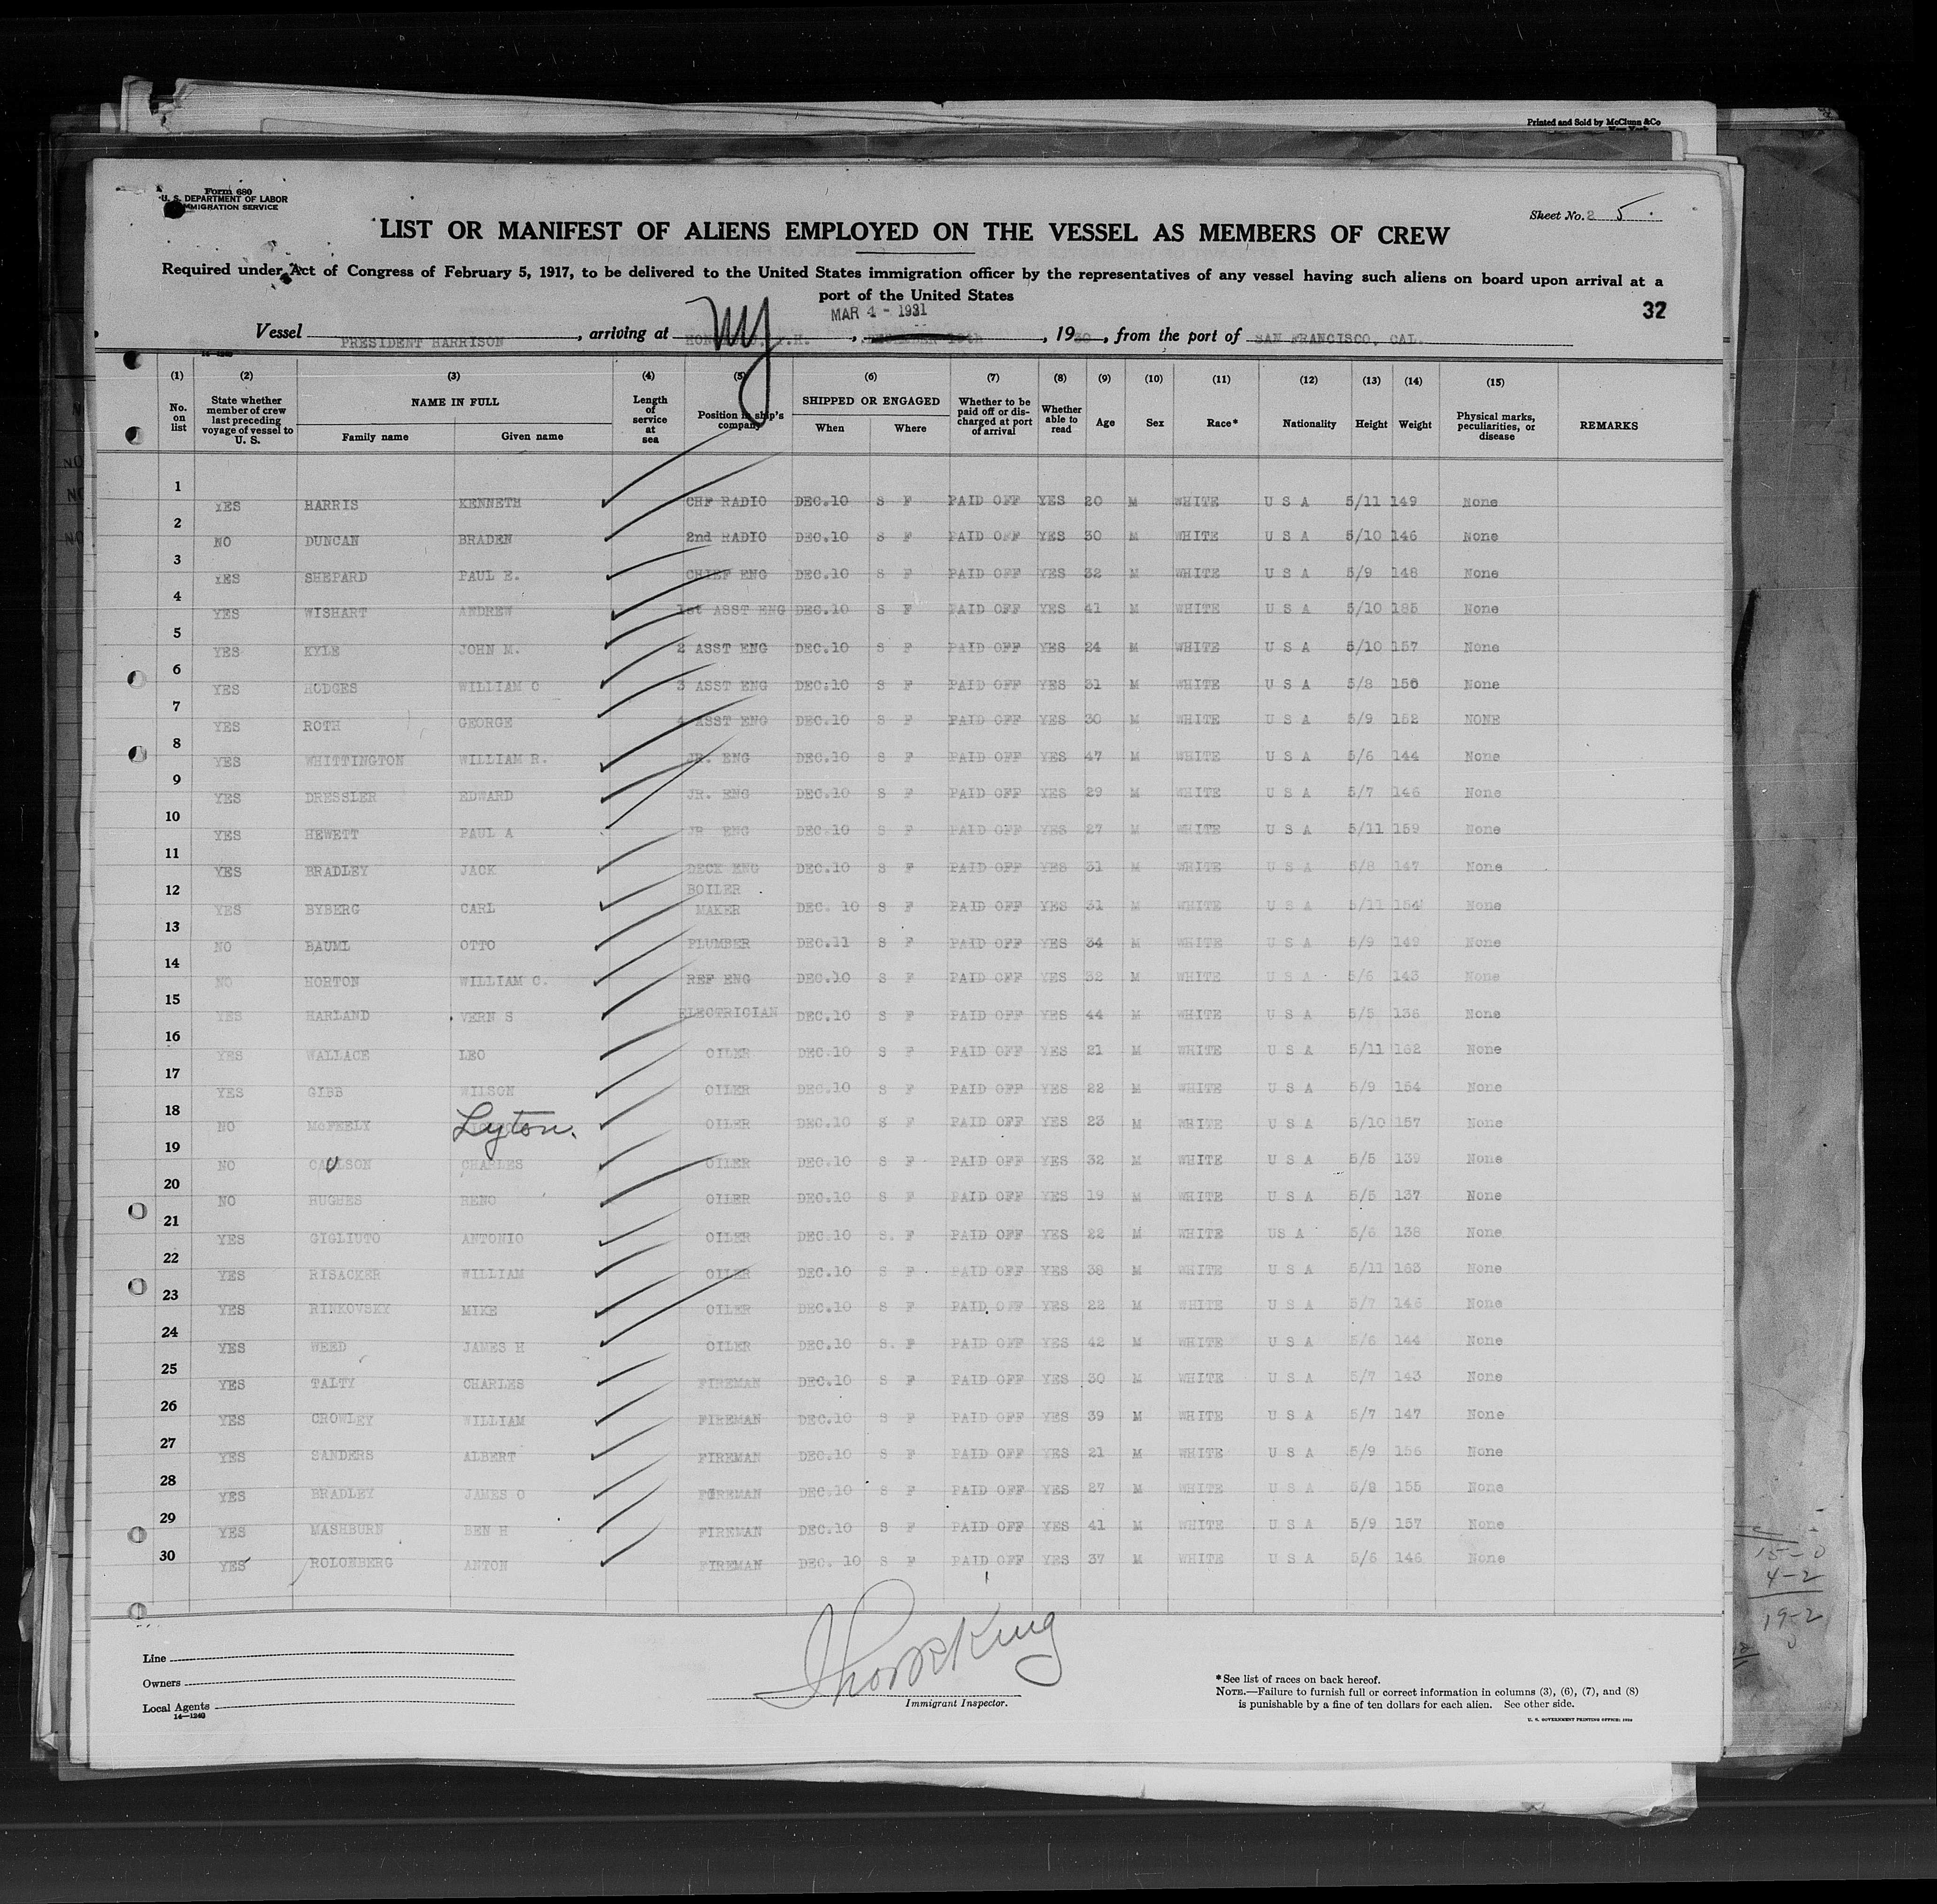 Printed and Sold by McClunn &Co
New York
Form 680
U. S. DEPARTMENT OF LABOR
IMMIGRATION SERVICE
Sheet No. 2 5
LIST OR MANIFEST OF ALIENS EMPLOYED ON THE VESSEL AS MEMBERS OF CREW
Required under Act of Congress of February 5, 1917, to be delivered to the United States immigration officer by the representatives of any vessel having such aliens on board upon arrival at a
port of the United States
32
MAR 4 - 1931
NY
Vessel PRESIDENT HARRISON, arriving at , , 1930, from the port of SAN FRANCISCO, CAL.
14-1240
(1) (2) (3) (4) (5) (6) (7) (8) (9) (10) (11) (12) (13) (14) (15)
No. on list State whether member of crew last preceding voyage of vessel to U. S. NAME IN FULL Family name Given name Length of service at sea Position in ship's company SHIPPED OR ENGAGED When Where Whether to be paid off or discharged at port of arrival Whether able to read Age Sex Race* Nationality Height Weight Physical marks, peculiarities, or disease REMARKS
1 YES HARRIS KENNETH CHF RADIO DEC.10 S F PAID OFF YES 20 M WHITE U S A 5/11 149 None
2 NO DUNCAN BRADEN 2nd RADIO DEC.10 S F PAID OFF YES 30 M WHITE U S A 5/10 146 None
3 YES SHEPARD PAUL E. CHIEF ENG DEC.10 S F PAID OFF YES 32 M WHITE U S A 5/9 148 None
4 YES WISHART ANDREW 1st ASST ENG DEC.10 S F PAID OFF YES 41 M WHITE U S A 5/10 185 None
5 YES KYLE JOHN M. 2 ASST ENG DEC.10 S F PAID OFF YES 24 M WHITE U S A 5/10 157 None
6 YES HODGES WILLIAM C 3 ASST ENG DEC.10 S F PAID OFF YES 31 M WHITE U S A 5/8 150 None
7 YES ROTH GEORGE 4 ASST ENG DEC.10 S F PAID OFF YES 30 M WHITE U S A 5/9 152 NONE
8 YES WHITTINGTON WILLIAM R. JR. ENG DEC.10 S F PAID OFF YES 47 M WHITE U S A 5/6 144 None
9 YES DRESSLER EDWARD JR. ENG DEC.10 S F PAID OFF YES 29 M WHITE U S A 5/7 146 None
10 YES HEWETT PAUL A JR ENG DEC.10 S F PAID OFF YES 27 M WHITE U S A 5/11 159 None
11 YES BRADLEY JACK DECK ENG DEC.10 S F PAID OFF YES 31 M WHITE U S A 5/8 147 None
12 YES BYBERG CARL BOILER MAKER DEC. 10 S F PAID OFF YES 31 M WHITE U S A 5/11 154 None
13 NO BAUML OTTO PLUMBER DEC.11 S F PAID OFF YES 34 M WHITE U S A 5/9 149 None
14 NO HORTON WILLIAM C. REF ENG DEC.10 S F PAID OFF YES 32 M WHITE U S A 5/6 143 None
15 YES HARLAND VERN S ELECTRICIAN DEC.10 S F PAID OFF YES 44 M WHITE U S A 5/5 136 None
16 YES WALLACE LEO OILER DEC.10 S F PAID OFF YES 21 M WHITE U S A 5/11 162 None
17 YES GIBB WILSON OILER DEC.10 S F PAID OFF YES 22 M WHITE U S A 5/9 154 None
18 NO McFEELY Lyton. OILER DEC.10 S F PAID OFF YES 23 M WHITE U S A 5/10 157 None
19 NO CARLSON CHARLES OILER DEC.10 S F PAID OFF YES 32 M WHITE U S A 5/5 139 None
20 NO HUGHES RENO OILER DEC.10 S F PAID OFF YES 19 M WHITE U S A 5/5 137 None
21 YES GIGLIUTO ANTONIO OILER DEC.10 S. F PAID OFF YES 22 M WHITE US A 5/6 138 None
22 YES RISACKER WILLIAM OILER DEC.10 S F PAID OFF YES 38 M WHITE U S A 5/11 163 None
23 YES RINKOVSKY MIKE OILER DEC.10 S F PAID OFF YES 22 M WHITE U S A 5/7 146 None
24 YES WEED JAMES H OILER DEC.10 S. F PAID OFF YES 42 M WHITE U S A 5/6 144 None
25 YES TALTY CHARLES FIREMAN DEC.10 S F PAID OFF YES 30 M WHITE U S A 5/7 143 None
26 YES CROWLEY WILLIAM FIREMAN DEC.10 S F PAID OFF YES 39 M WHITE U S A 5/7 147 None
27 YES SANDERS ALBERT FIREMAN DEC.10 S F PAID OFF YES 21 M WHITE U S A 5/9 156 None
28 YES BRADLEY JAMES O FIREMAN DEC.10 S F PAID OFF YES 27 M WHITE U S A 5/8 155 None
29 YES MASHBURN BEN H FIREMAN DEC.10 S F PAID OFF YES 41 M WHITE U S A 5/9 157 None
30 YES ROLONBERG ANTON FIREMAN DEC. 10 S F PAID OFF YES 37 M WHITE U S A 5/6 146 None
15-0
4-2
19-2
0
Line
Owners
Local Agents
14-1240
Immigrant Inspector.
*See list of races on back hereof.
NOTE.—Failure to furnish full or correct information in columns (3), (6), (7), and (8)
is punishable by a fine of ten dollars for each alien. See other side.
U. S. GOVERNMENT PRINTING OFFICE: